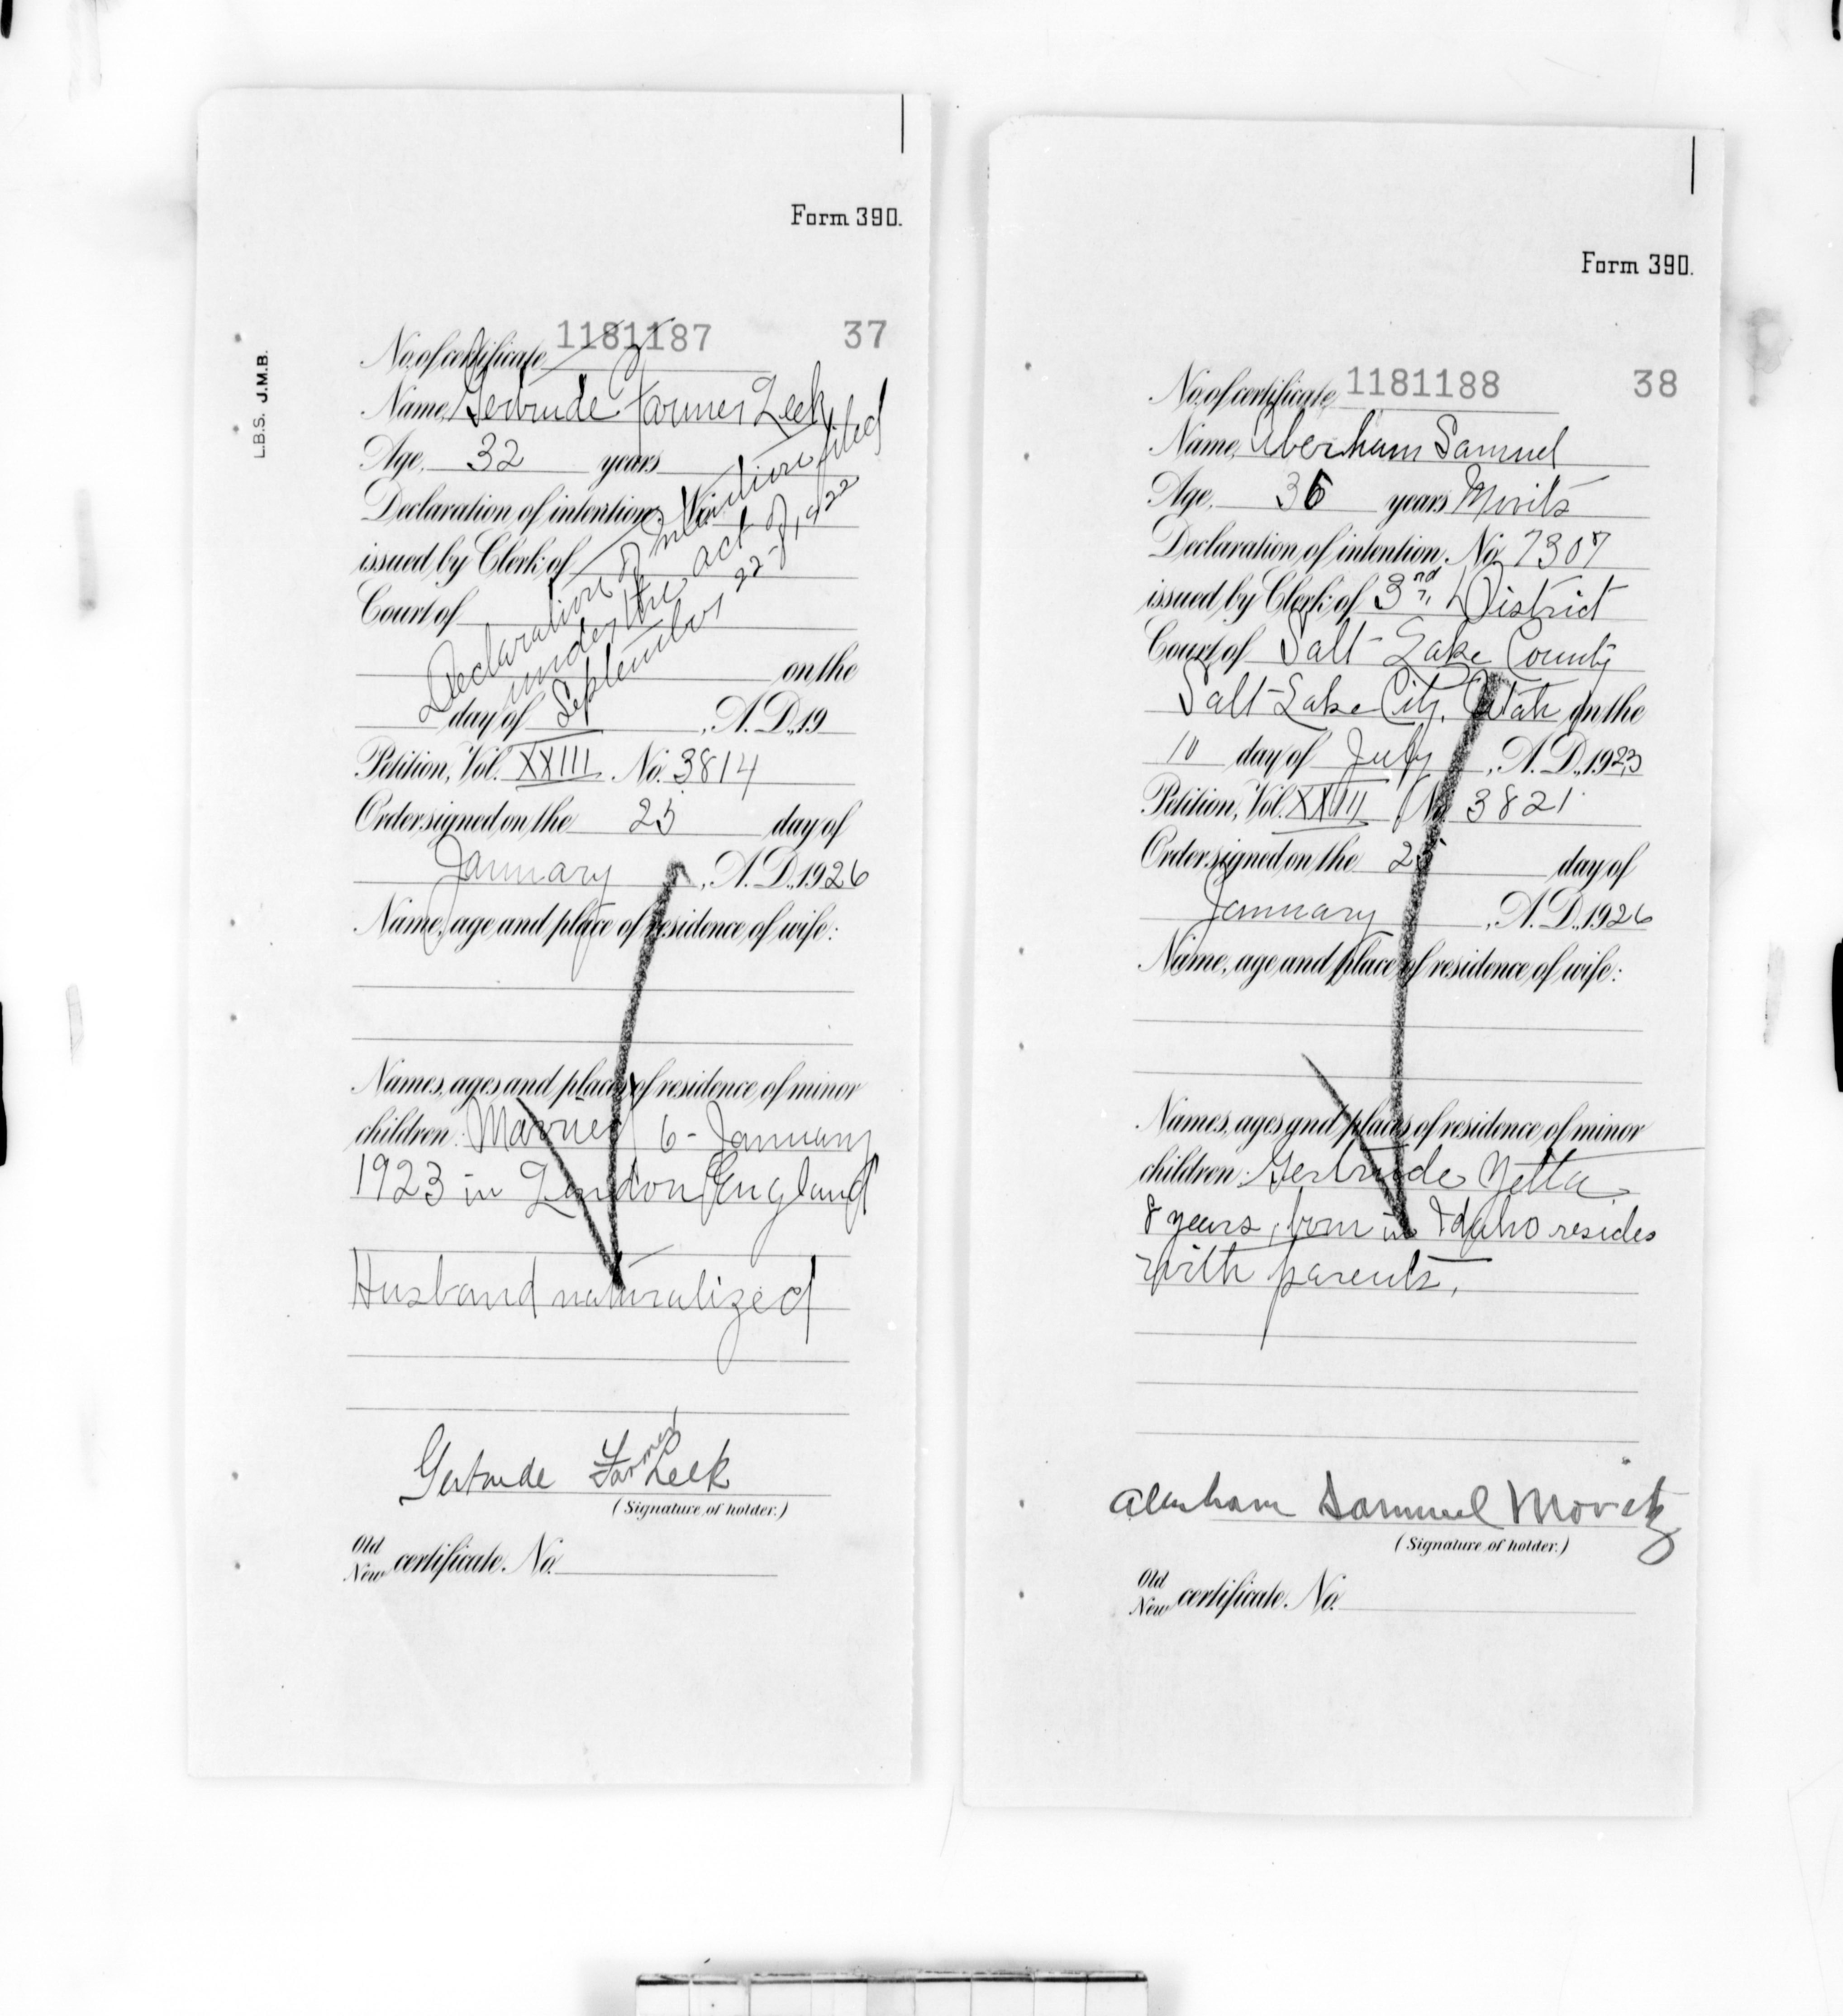 Form 390.
L.B.S. J.M.B.
No. of certificate 1181187 37
Name, Gertrude Farmer Leek
Age, 32 years
Declaration of intention, No.
issued by Clerk of
Court of
on the
day of , A. D., 19
Declaration of intention filed
under the act of
September 22-d, 1922
Petition, Vol. XXIII No. 3814
Order signed on the 25 day of
January , A. D., 1926
Name, age and place of residence of wife:
Names, ages and places of residence of minor
children: Married 6- January
1923 in London England
Husband naturalized
Gertrude Farmer Leek
(Signature of holder.)
Old
New certificate. No.
Form 390.
No. of certificate, 1181188 38
Name, Aberham Samuel
Age, 36 years Moritz
Declaration of intention, No. 7307
issued by Clerk of 3rd District
Court of Salt-Lake County
Salt-Lake City, Utah on the
10 day of July , A. D., 1923
Petition, Vol. XXIII No. 3821
Order signed on the 25 day of
January , A. D., 1926
Name, age and place of residence of wife:
Names, ages and places of residence of minor
children: Gertrude Yetta
8 years, born in Idaho resides
with parents.
Aberham Samuel Moritz
(Signature of holder.)
Old
New certificate. No.